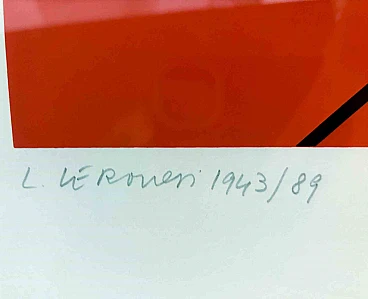 L. VERONESI 1943/89